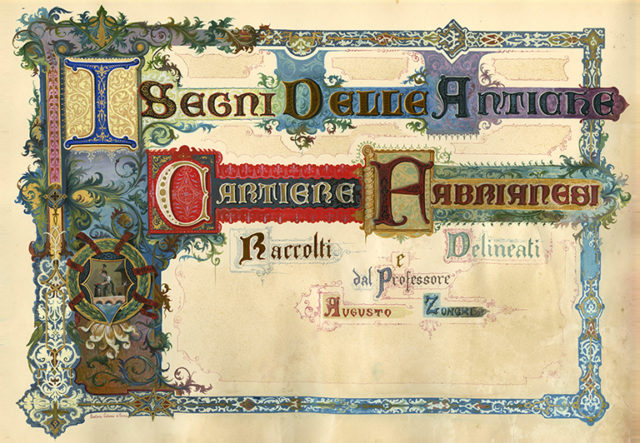 I SEGNI DELLE ANTICHE
CARTIERE FABRIANESI
Raccolti e Delineati
dal Professore
AUGUSTO ZONGHI